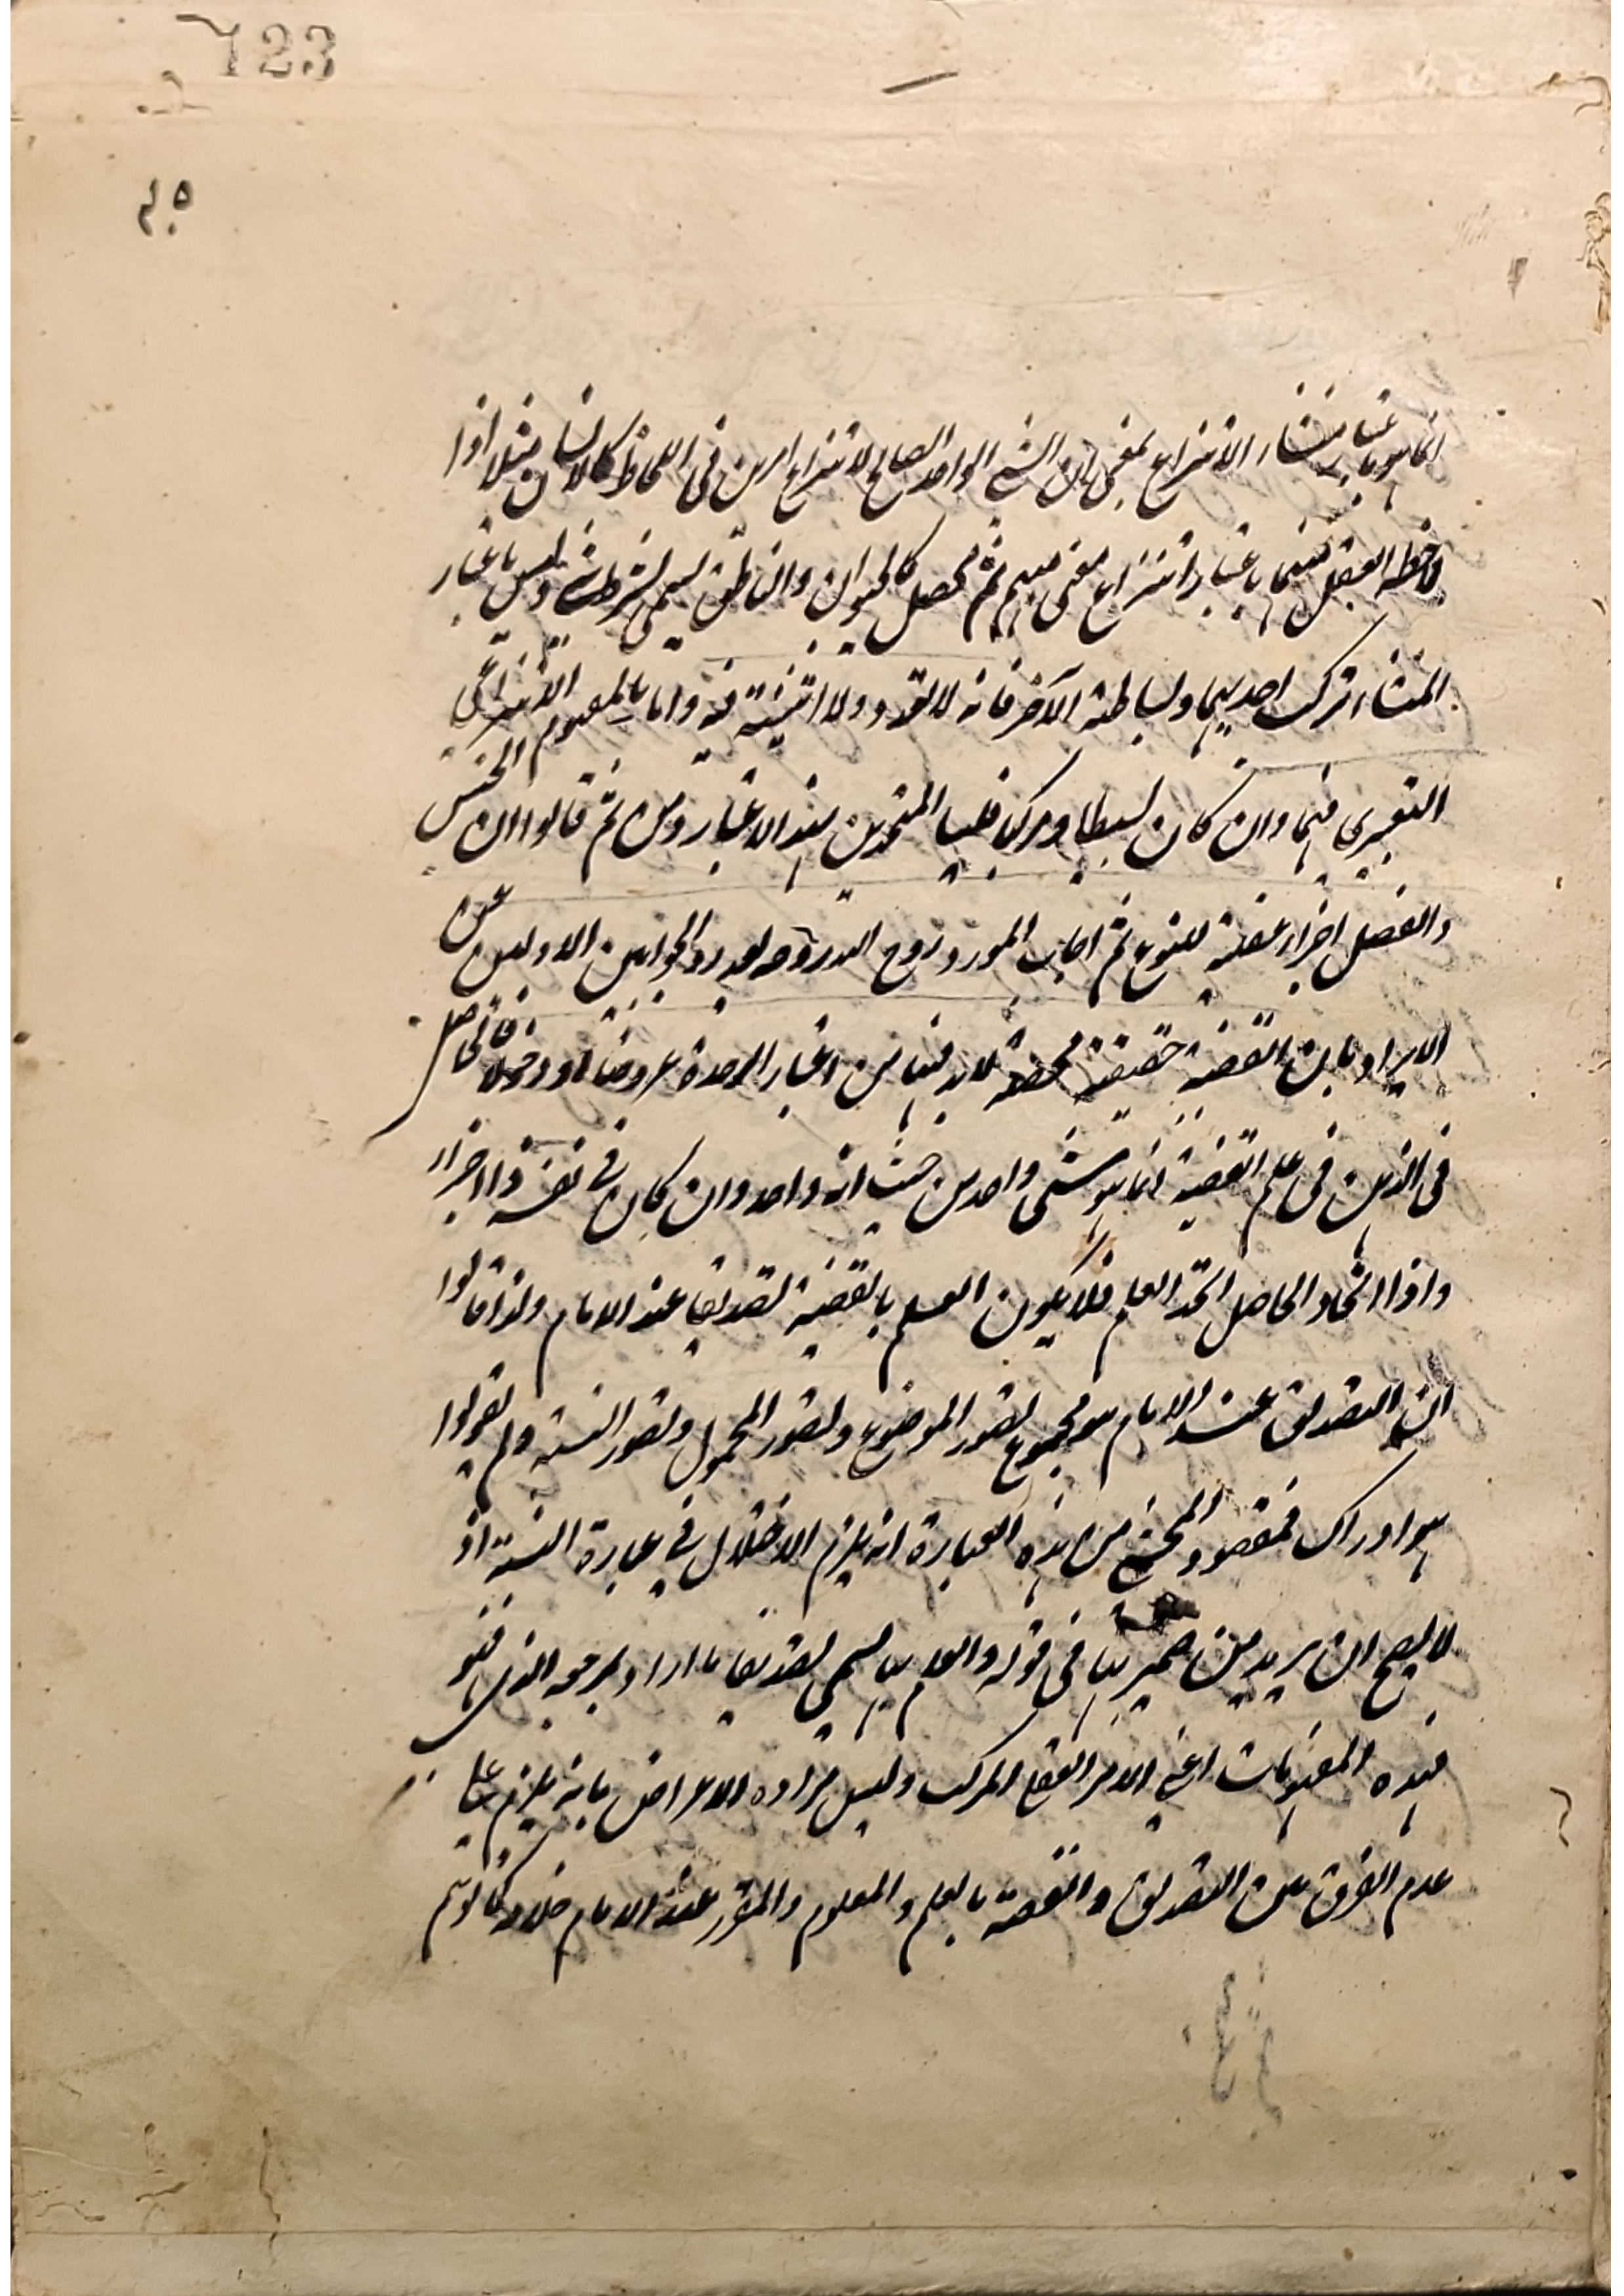 723
٢٠٥
انما هو باعتبار منشاء الانتزاع بمعنى بان الشئ الواحد الصالح لانتزاع امرين فى اللحاظ كالانسان مثلا اذا
لاحظه العقل باعتبار انتزاع معنى مبهم ثم محصل كالحيوان والناطق يسمى وليس باعتبار
المنشاء تركب احديهما وبساطة الآخر فانه لا تعدد ولا اثنينية فيه واما بالمفهوم الانتزاعى
التعبيرى فيهما وان كان بسيطا ومركبا فليسا المتحدين بهذا الاعتبار ومن ثم قالوا ان الجنس
والفصل اجزاء عقلية للنوع ثم اجاب المورد روح الله روحه بعد رد الجوابين الاولين عن
الايراد بان القضية حقيقة محصلة لابد فيها من اعتبار الوحدة عروضا او دخولا فالحاصل
فى الذهن فى علم القضية انما هو شئ واحد من حيث انه واحد وان كان فى نفسه ذا اجزاء
واذا اتحد الحاصل اتحد العلم فلا يكون العلم بالقضية تصديقا عند الامام ولذا قالوا
ان التصديق عند الامام هو مجموع تصور الموضوع وتصور المحمول وتصور النسبة ولم يقولوا
هو ادراك فمقصود المحشى من هذه العبارة انه يلزم الاختلال فى عبارة النسبة اذ
لا يصح ان يريد من ضمير بها فى قوله والعلم بها يسمى تصديقا ما اراد بمرجعه الذى هو
هذه المفهومات اعنى الامر العقلى المركب وليس مراده الاعتراض بانه يلزم على
عدم الفرق بين التصديق والقضية بالعلم والمعلوم والمقرر عند الامام خلافه كما توهم